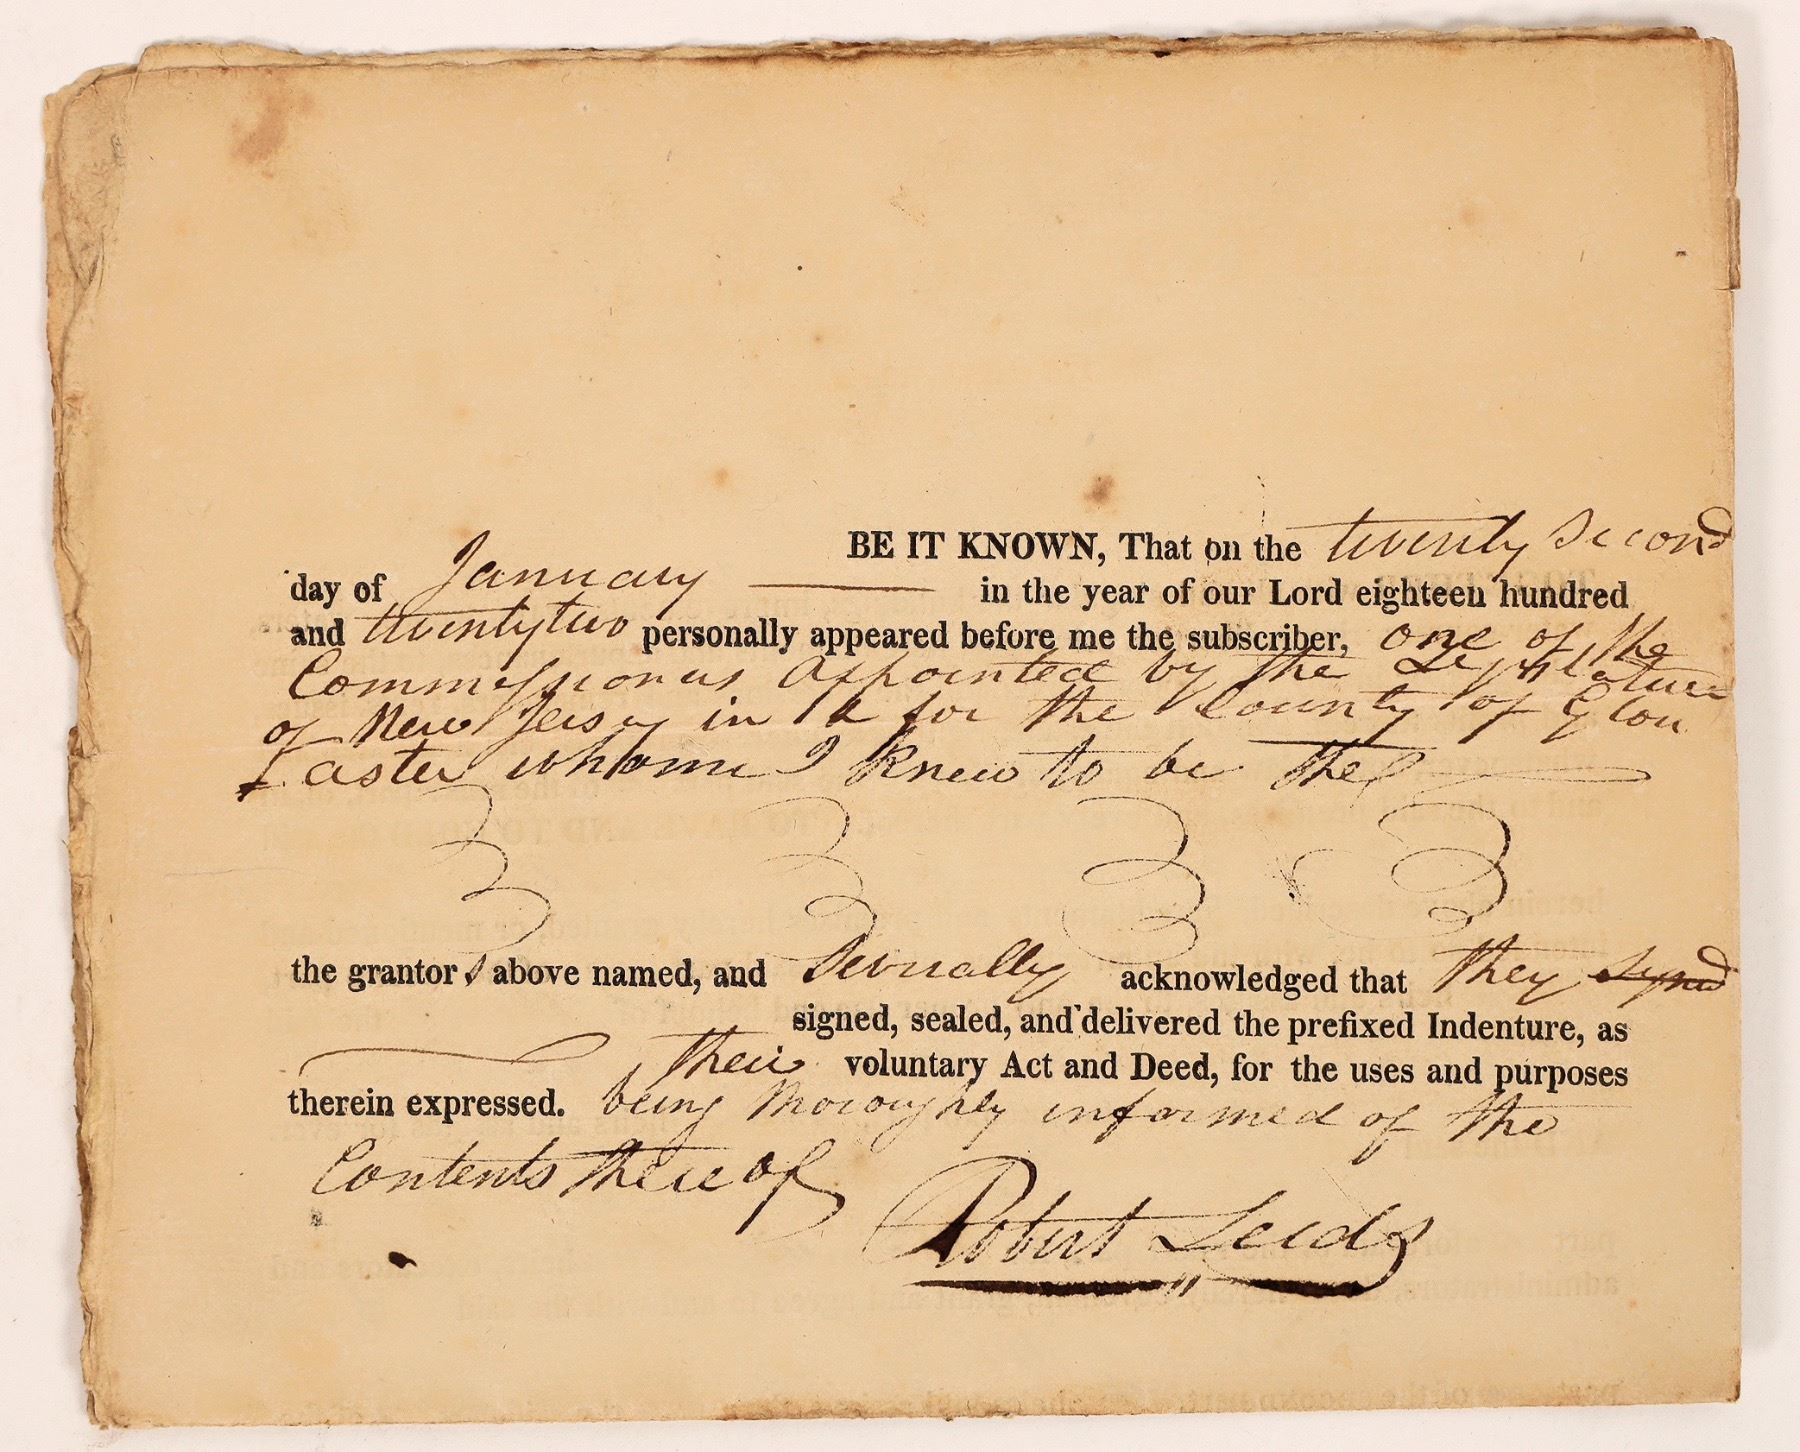 BE IT KNOWN, That on the twenty Second
day of January in the year of our Lord eighteen hundred
and twentytwo personally appeared before me the subscriber, one of the
Commissioners appointed by the Legislature
of New Jersey in & for the County of Glou
caster whome I knew to be the
the grantors above named, and Severally acknowledged that they
signed, sealed, and delivered the prefixed Indenture, as
their voluntary Act and Deed, for the uses and purposes
therein expressed. being thoroughly informed of the
Contents there of
Robert Leeds